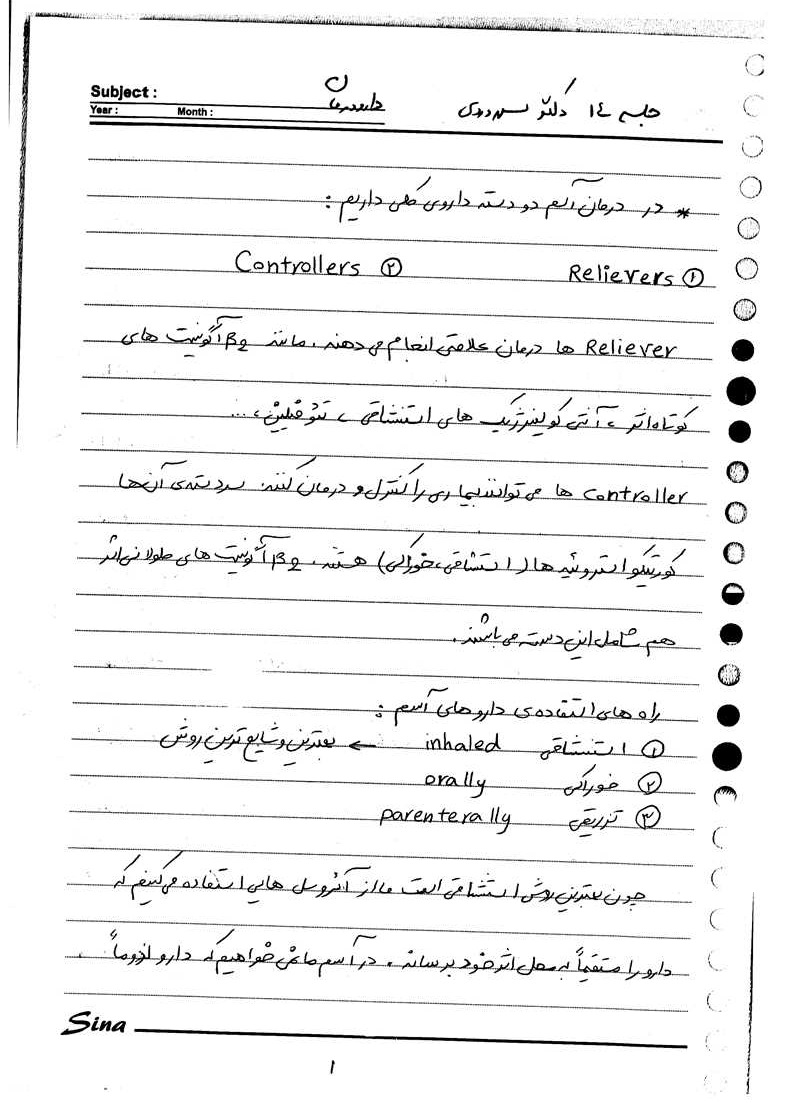 Subject :
Year : Month :
جلسه ۱۴ دکتر
* در درمان آسم دو دسته داروی کلی داریم :
① Relievers ② Controllers
Reliever ها درمان علامتی انجام می دهند . مانند β2 آگونیست های
کوتاه اثر ، آنتی کولینرژیک های استنشاقی ، تئوفیلین ، ...
controller ها می توانند بیماری را کنترل و درمان کنند . سردسته ی آن ها
کورتیکواستروئید ها ( استنشاقی ، خوراکی ) هستند . β2 آگونیست های طولانی اثر
هم شامل این دسته می باشند .
راه های استفاده ی داروهای آسم :
① استنشاقی inhaled ← بهترین و شایع ترین روش
② خوراکی orally
③ تزریقی parenterally
چون بهترین روش استنشاقی است ما از آئروسل هایی استفاده می کنیم که
دارو را مستقیماً به محل اثر خود برساند . در آسم ما نمی خواهیم که دارو لزوماً
Sina
۱